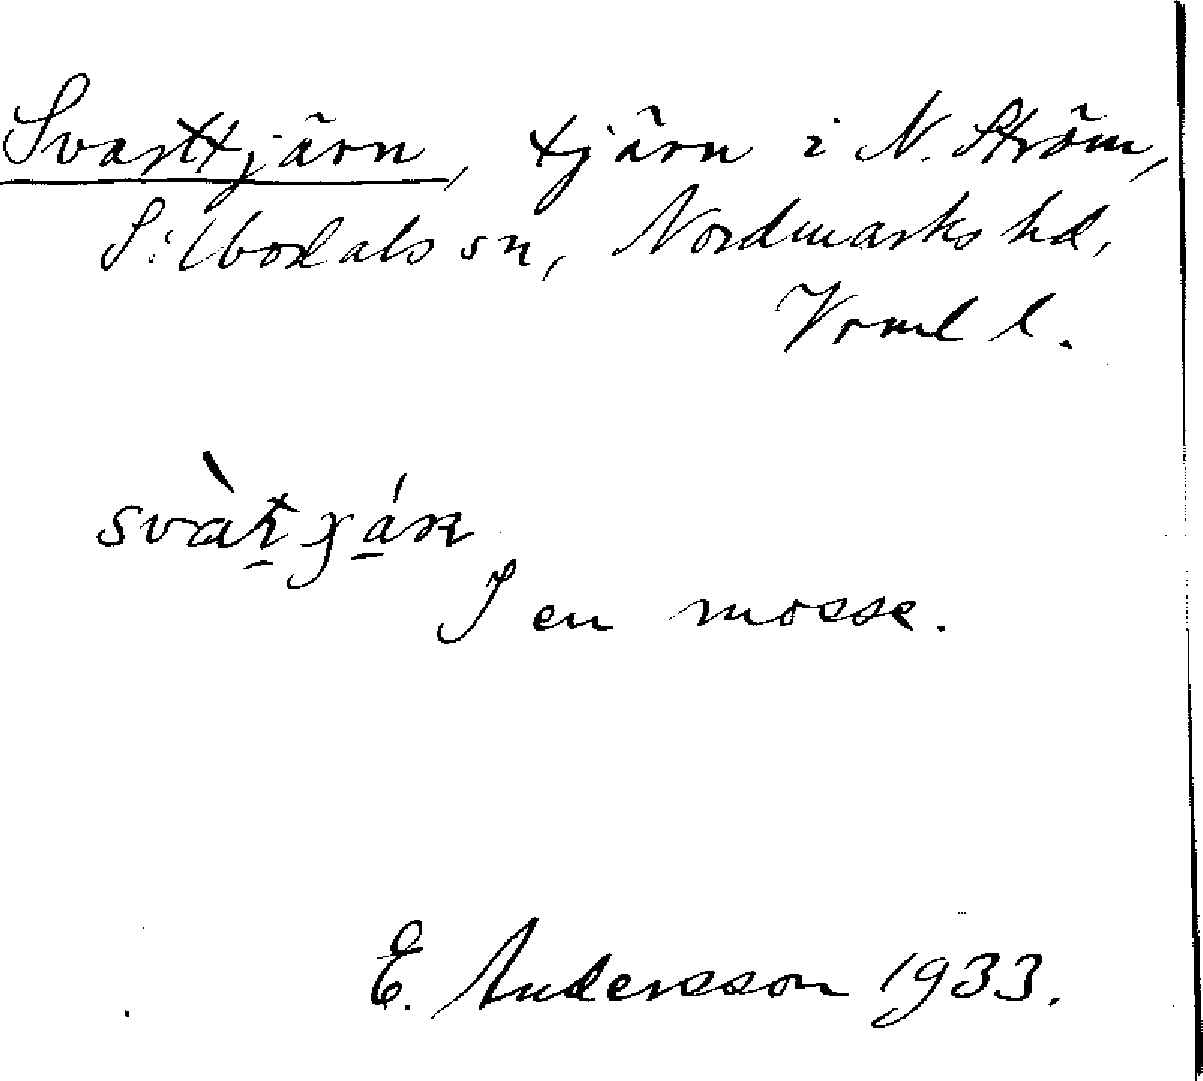 Svarttjärn, tjärn i N. Ström,
Silbodals sn, Nordmarks hd,
Vrml l.
I en mosse.
E. Andersson 1933.